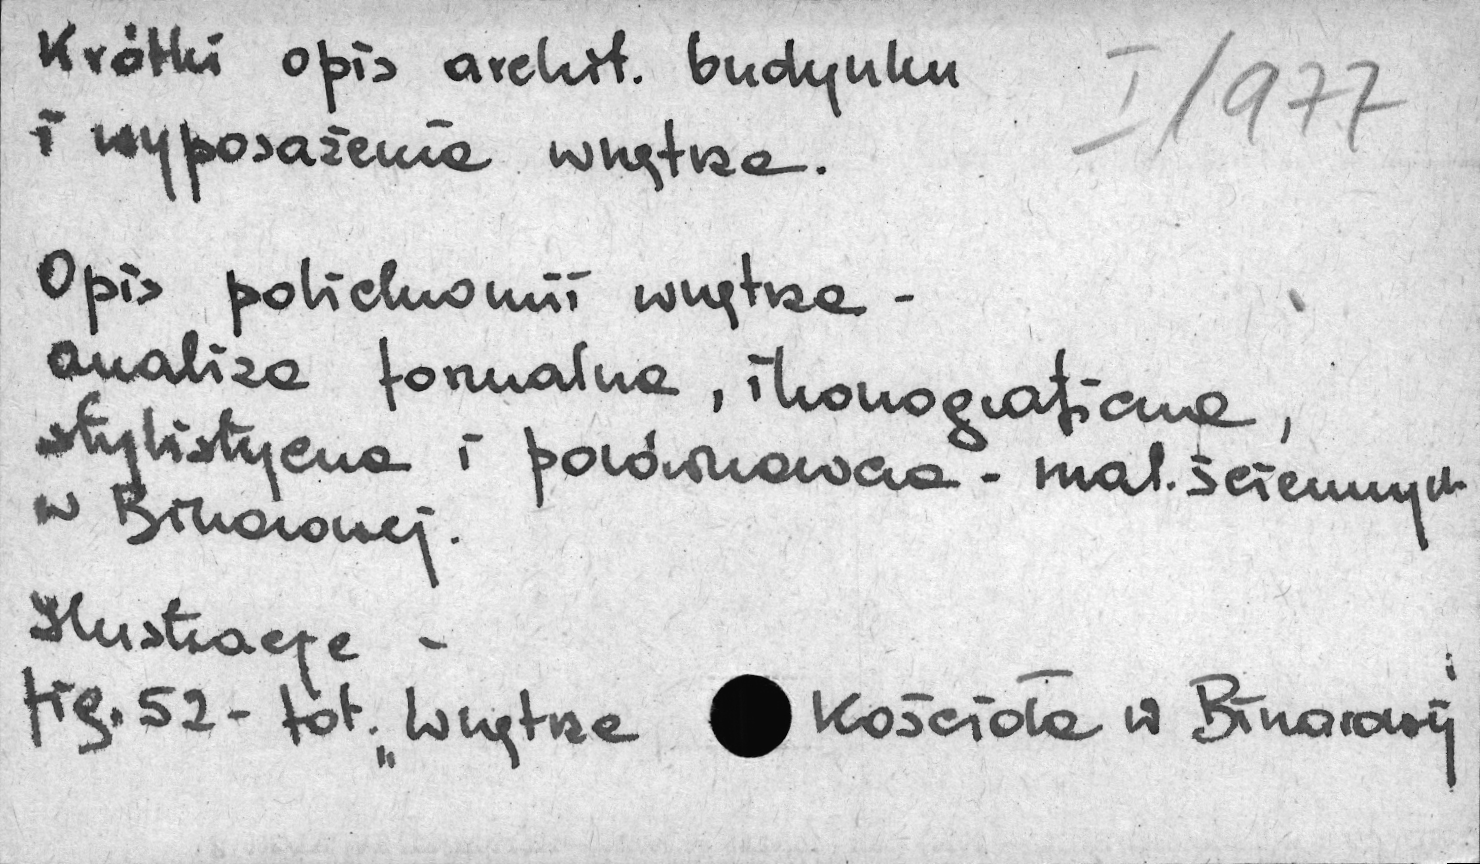 Krótki opis archit. budynku
I/977
i wyposażenia wnętrza.
Opis polichromii wnętrza -
analiza formalna, ikonograficzna,
stylistyczna i porównawcza - mal. ściennych
w Binarowej.
Ilustracje -
fig. 52 - fot. „Wnętrze Kościoła w Binarowej